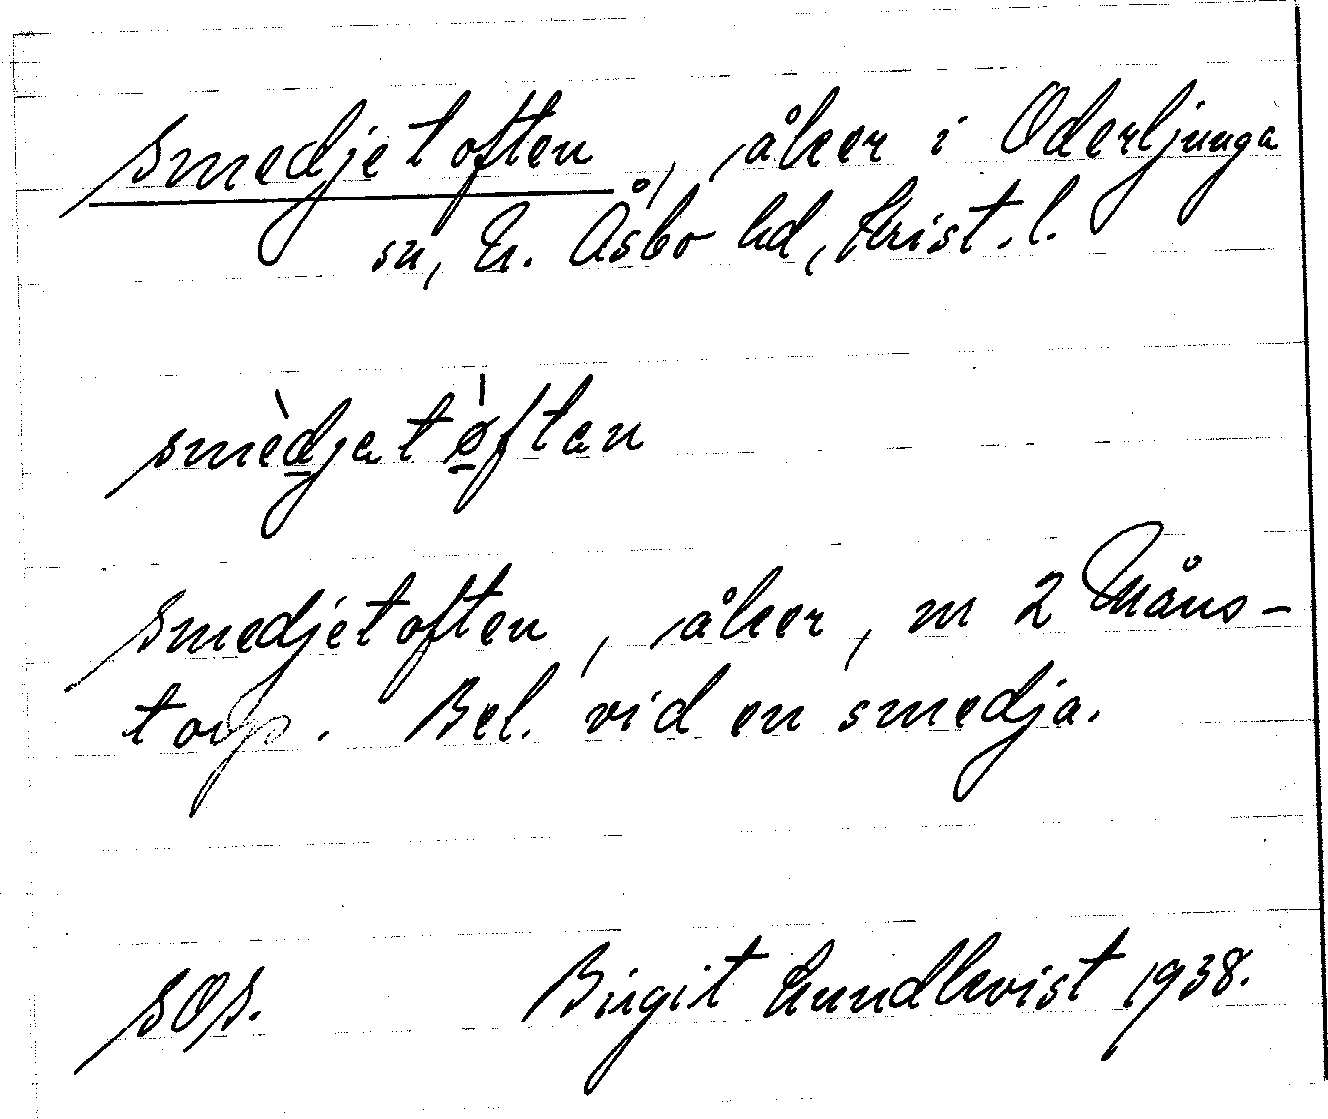 Smedjetoften, åker i Oderljunga
sn, N. Åsbo hd, Krist. l.
smèdjatø̀ftan
Smedjetoften, åker, m 2 Måns-
torp. Bel. vid en smedja.
SOS. Birgit Lundkvist 1938.